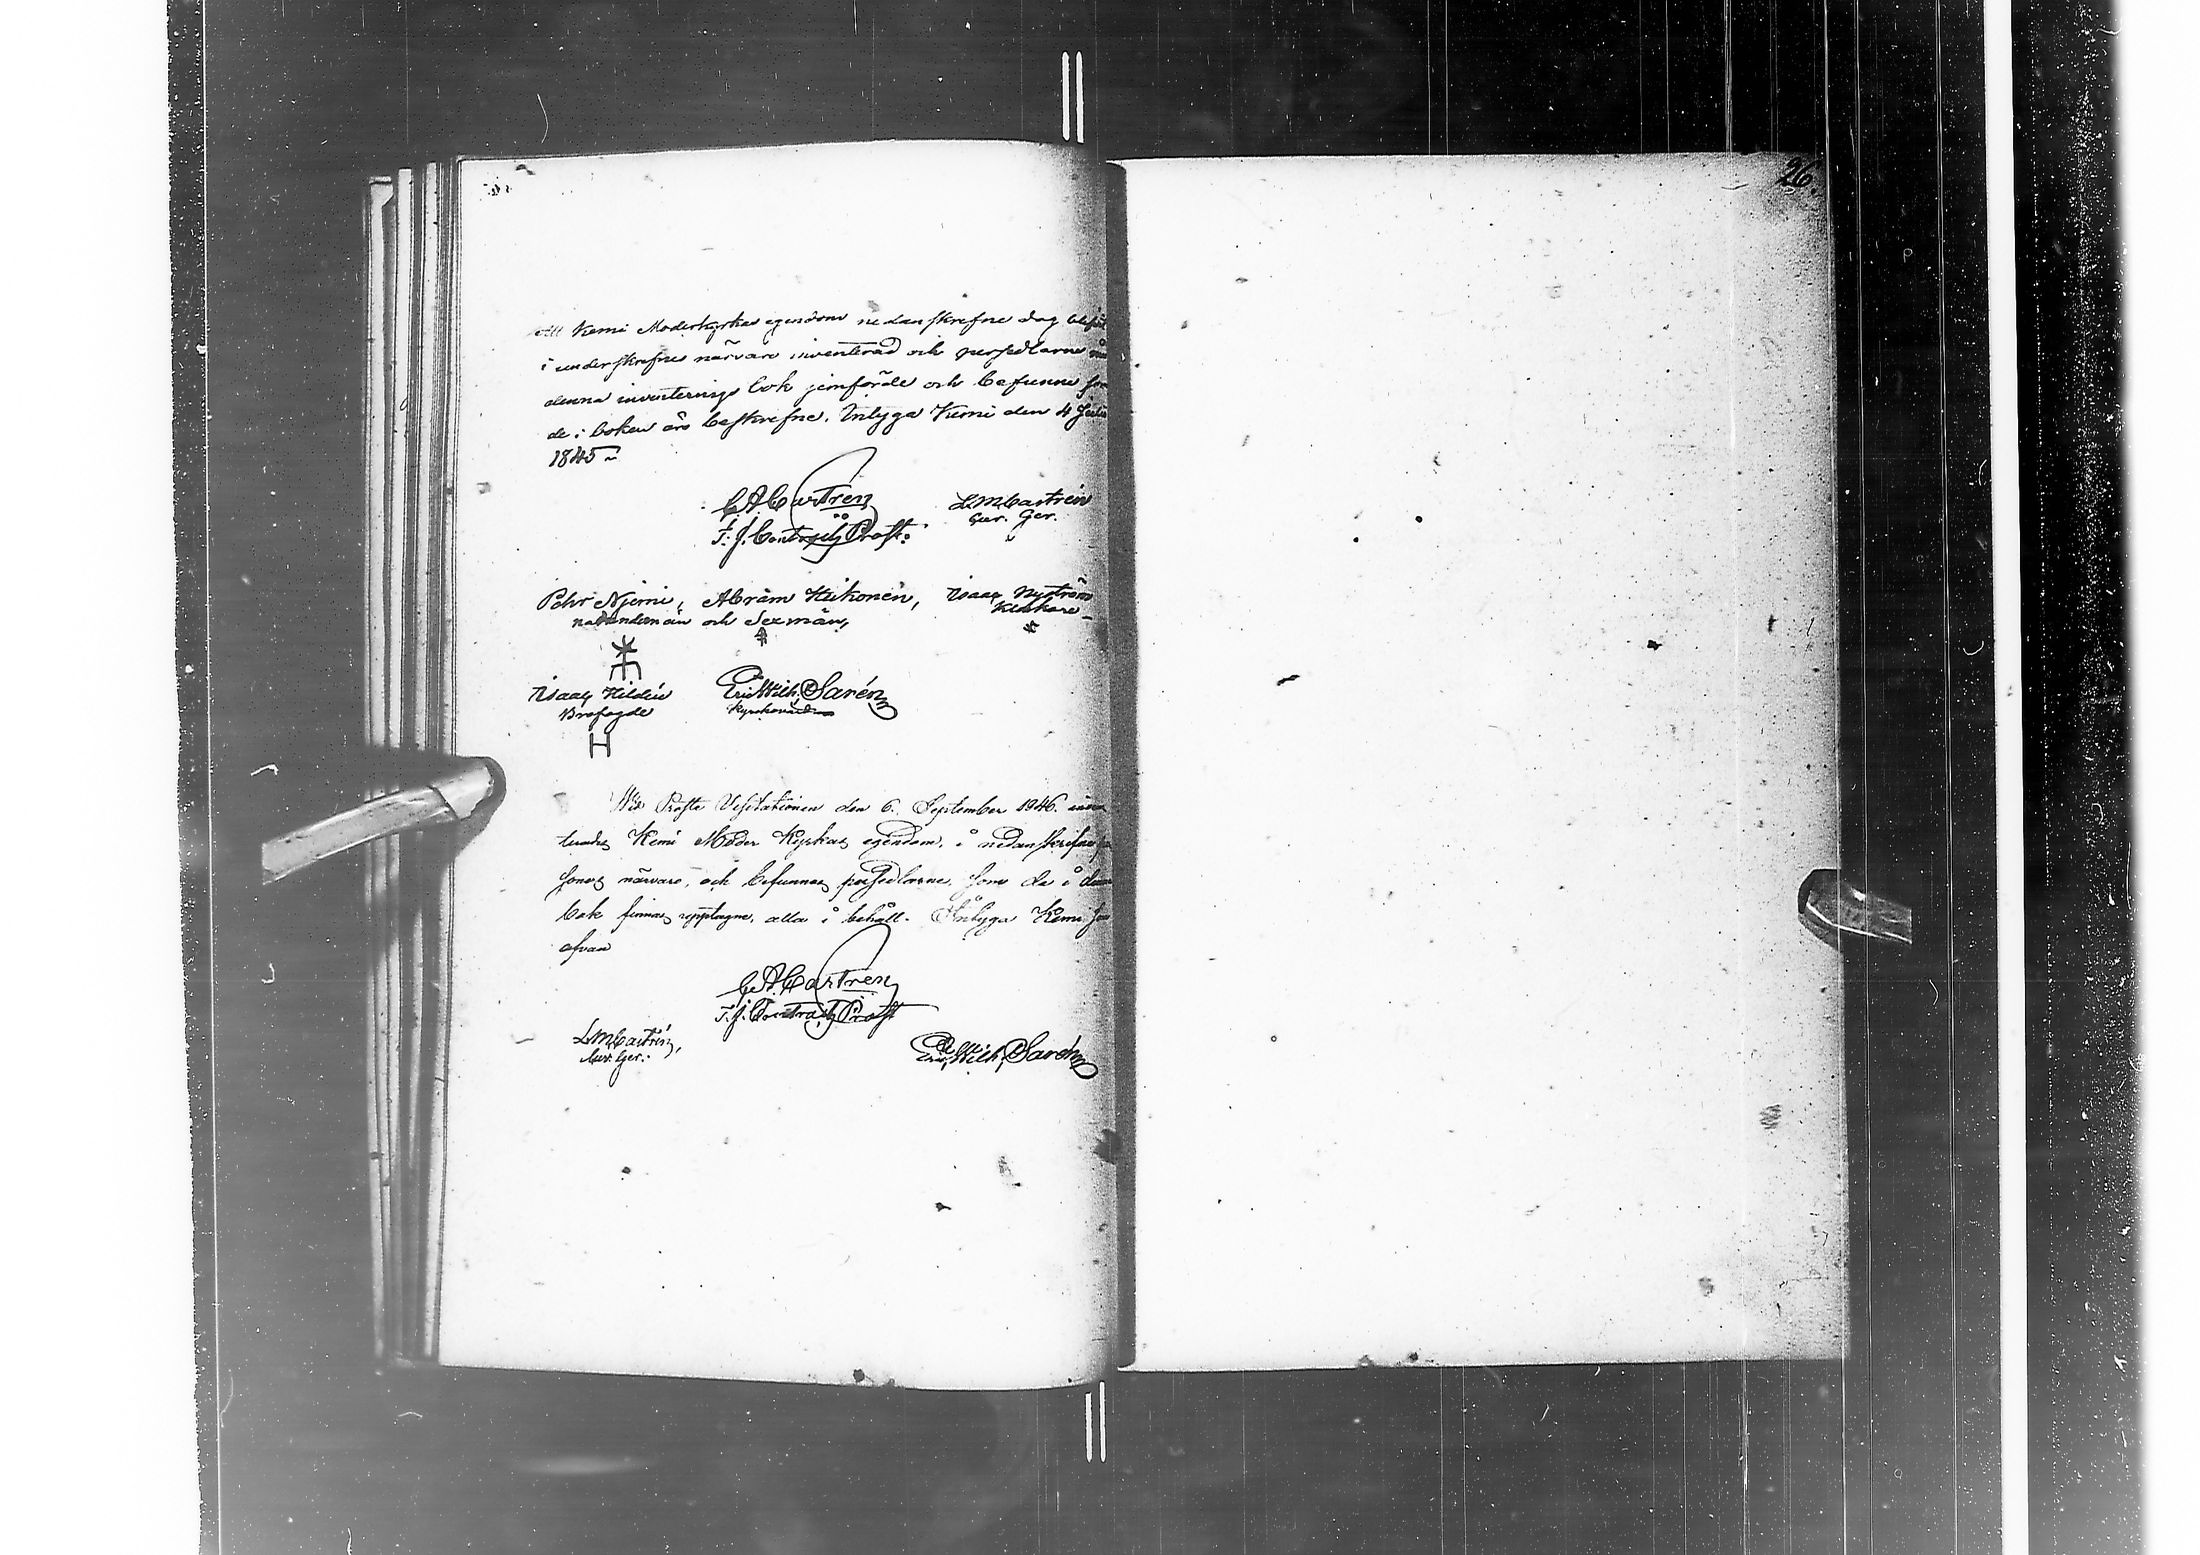 26.
Att Kemi Moderkyrkas egendom nedanskrefne dag blifvit
i underskrefnes närvaro inventerad och persedlarne med
denna inventerings bok jemförde och befunne som
de i boken äro beskrefne. Intyga Kemi den 4 Julii
1845
C. A. Castrén
T. J. Contracts Prost.
L M Castrén
Cur. Ger.
Pehr Njemi, Abram Heikonen, Isaac Nyström
nämndemän och Sexmän, Klåckare
Isaac Hildén
Brofogde
H
Eric Wilh. Sarén
Kyrckovärd
Wid Prosts Visitationen den 6. September 1846. inven
terades Kemi Moder Kyrkas egendom, i nedanskrifne per
soners närvaro, och befunnos persedlarne, som de i denna
bok finnas upptagne, alla i behåll. Intyga Kemi som
ofvan
C. A. Castrén
T. J. Contracts Prost
L M Castrén,
Cur. Ger.
Eric Wilh. Sarén